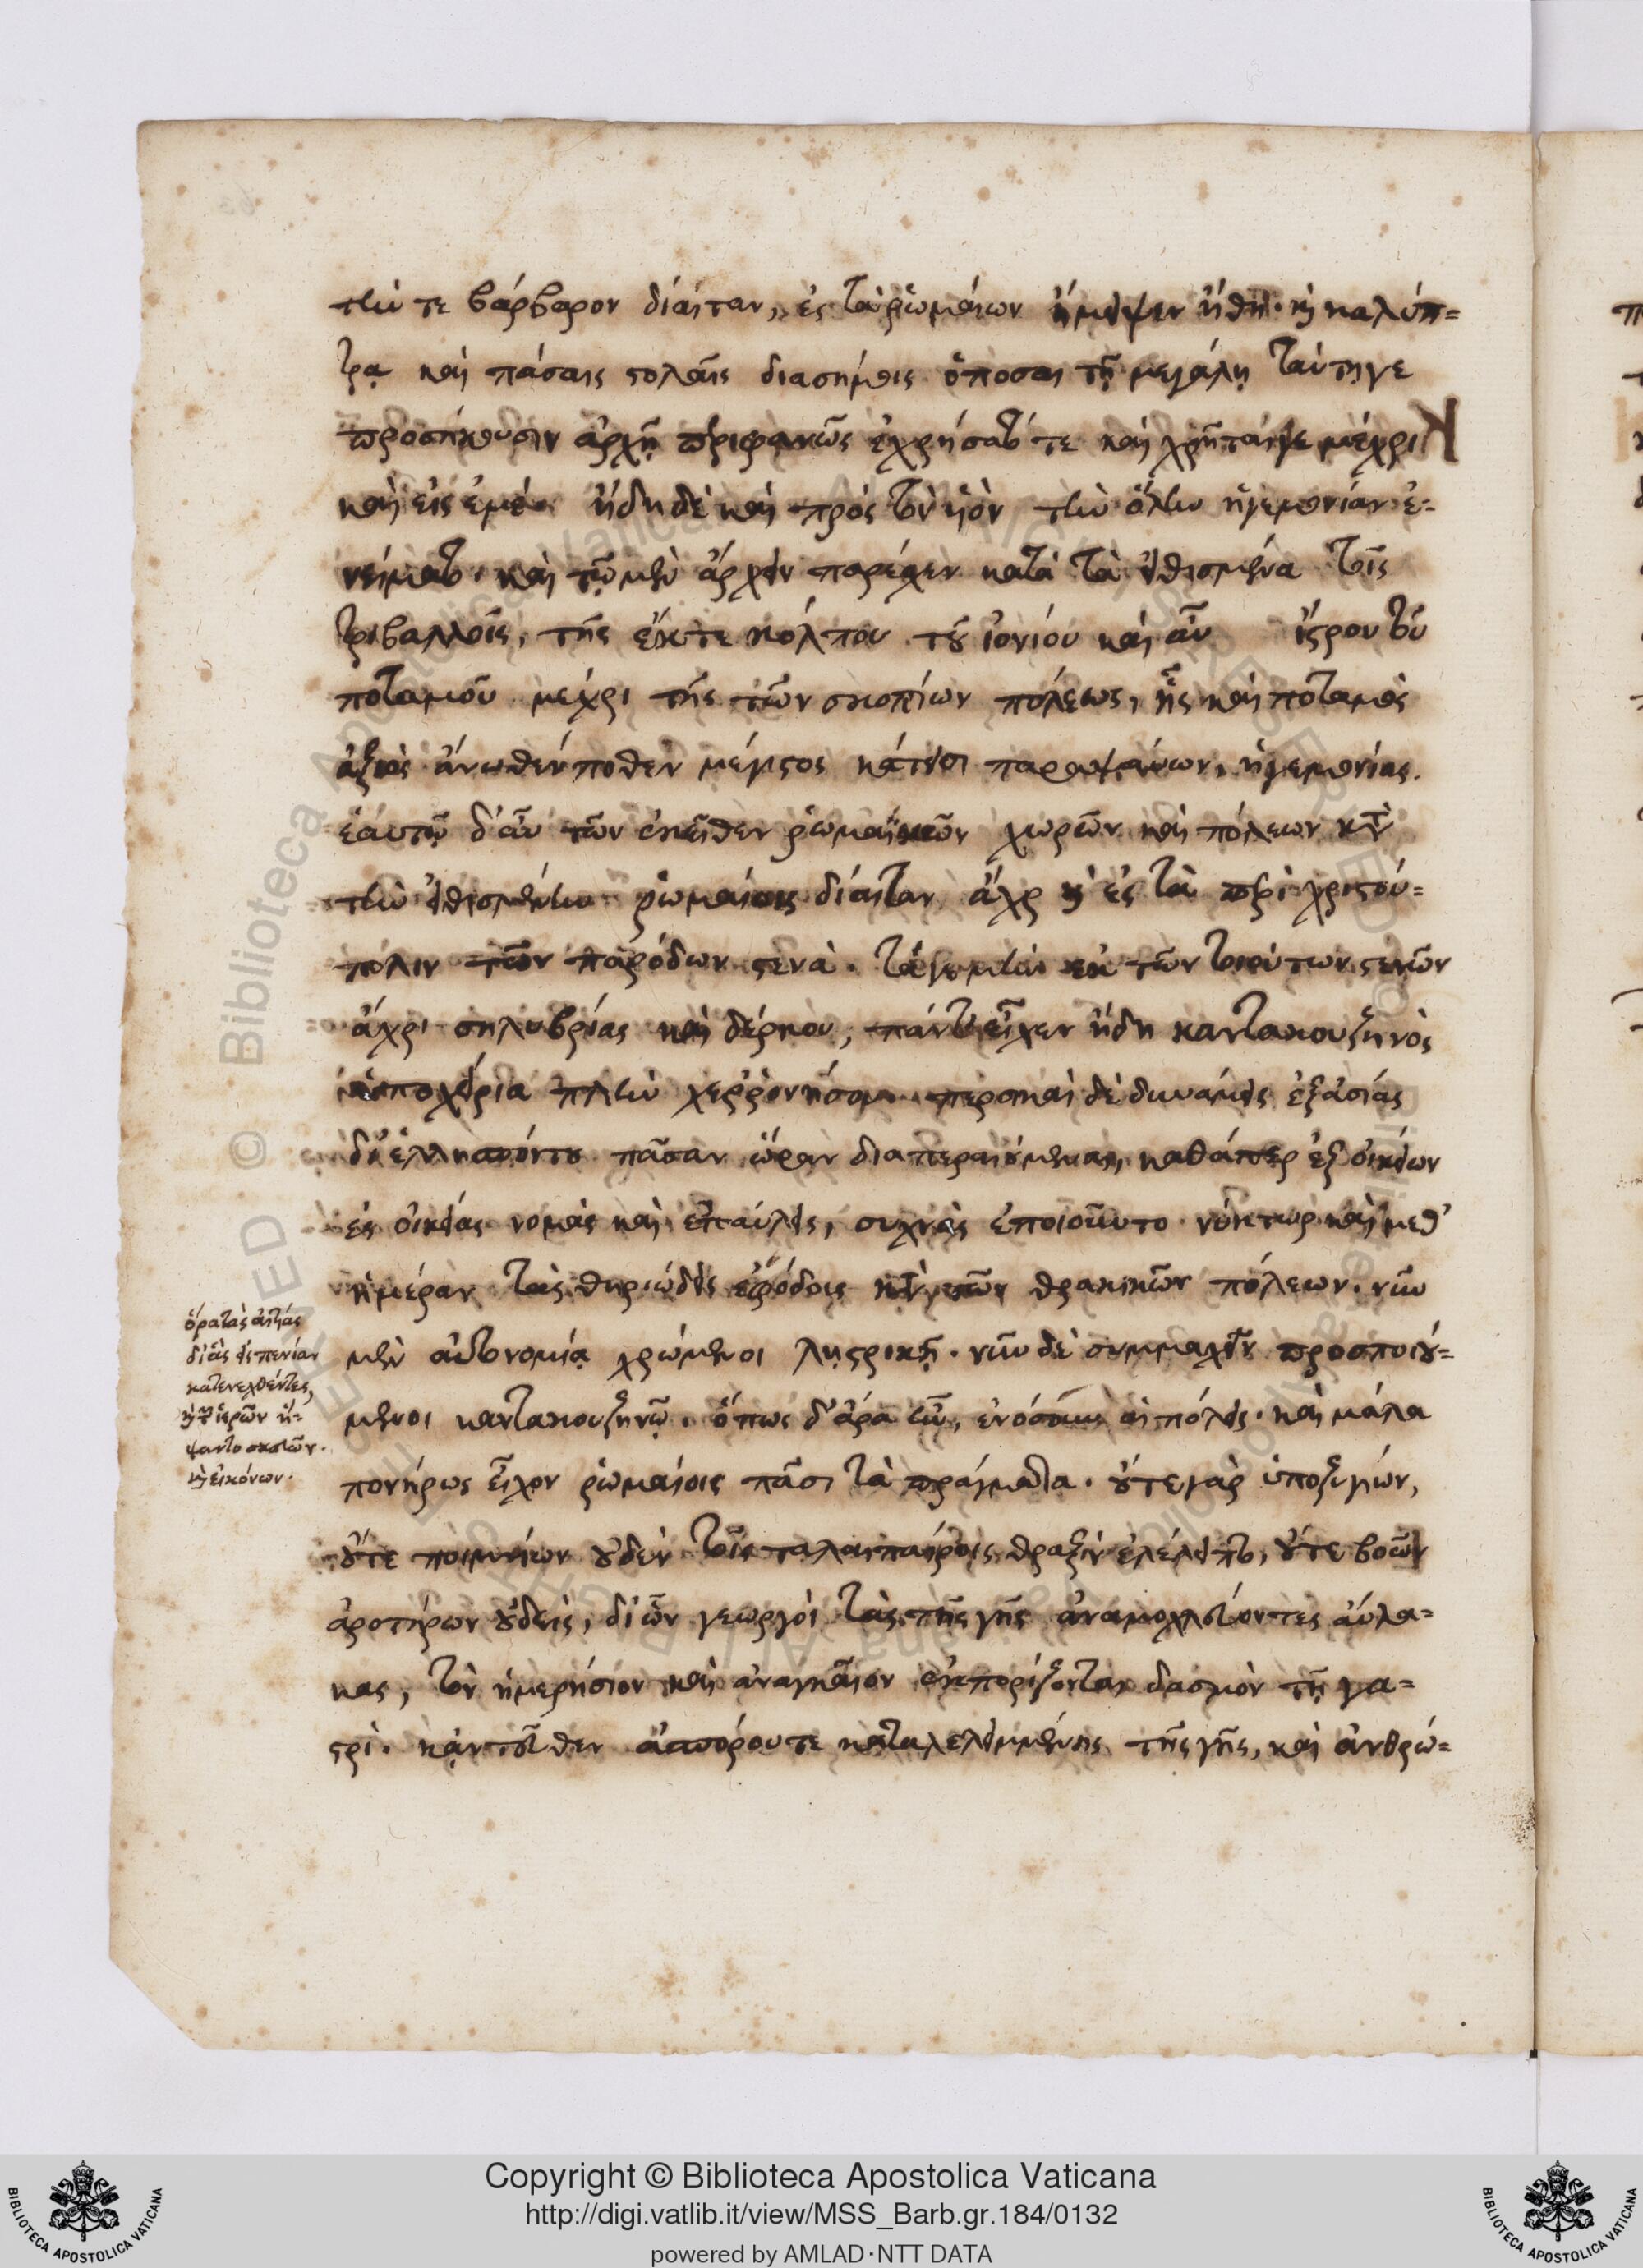 τὴν τε βάρβαρον δίαιταν, ἐς τὰ ῥωμαίων ἤμειψεν ἤθη. καὶ καλύπ=
τρᾳ καὶ πάσαις στολαῖς διασήμοις ὁπόσαι τῇ μεγάλῃ ταύτῃ γε
προσήκουσιν ἀρχῇ περιφανῶς ἐχρήσατό τε καὶ χρῆταί γε μέχρι
καὶ εἰς ἐμέ. ἤδη δὲ καὶ πρὸς τὸν υἱὸν τὴν ὅλην ἡγεμονίαν ἐ=
νείματο. καὶ τῷ μὲν ἄρχειν παρέσχεν κατὰ τὰ εἰθισμένα τοῖς
τριβαλλοῖς, τῆς ἔκ τε κόλπου τοῦ ἰονίου καὶ αὖ ἴστρου τοῦ
ποταμοῦ μέχρι τῆς τῶν σκοπίων πόλεως, ἧς καὶ ποταμὸς
ἀξιὸς ἄνωθέν ποθεν μέγιστος κάτεισι παραψαύων, ἡγεμονίας.
ἑαυτῷ δ' αὖ τῶν ἐκεῖθεν ῥωμαϊκῶν χωρῶν καὶ πόλεων κατὰ
τὴν εἰθισμένην ῥωμαίοις δίαιταν ἄχρι καὶ ἐς τὰ περὶ χριστού=
πολιν τῶν παρόδων στενά. τά γε μὴν ἐκ τῶν τοιούτων στενῶν
ἄχρι σηλυβρίας καὶ δέρκου, πάντα εἶχεν ἤδη καντακουζηνὸς
ὑποχείρια πλὴν χερρονήσου. περσικαὶ δὲ δυνάμεις ἐξ ἀσίας
δι' ἑλλησπόντου πᾶσαν ὥραν διαπεραιούμεναι, καθάπερ ἐξ οἰκείων
ἐς οἰκείας νομὰς καὶ ἐπαύλεις, συχνὰς ἐποιοῦντο νύκτωρ καὶ μεθ'
ἡμέραν τὰς θηριώδεις ἐφόδους κατά γε τῶν θρακικῶν πόλεων. νῦν
μὲν αὐτονομίᾳ χρώμενοι λῃστρικῇ. νῦν δὲ συμμαχεῖν προσποιού=
μενοι καντακουζηνῷ. ὅπως δ' ἄρα ἦν, ἐνόσουν αἱ πόλεις. καὶ μάλα
πονήρως εἶχον ῥωμαίοις πᾶσι τὰ πράγματα. οὔτε γὰρ ὑποζυγίων,
οὔτε ποιμνίων οὐδὲν τοῖς ταλαιπώροις θραξὶν ἐλέλειπτο, οὔτε βοῶν
ἀροτήρων οὐδείς, δι' ὧν γεωργοὶ τὰς τῆς γῆς ἀναμοχλεύοντες αὔλα=
κας, τὸν ἡμερήσιον καὶ ἀναγκαῖον ἐκπορίζονται δασμὸν τῇ γα=
στρί. κἀντεῦθεν ἀσπόρου τε καταλελειμμένης τῆς γῆς, καὶ ἀνθρώ=
ὅρα τὰς αἰτίας
δι' ἃς εἰς πενίαν
κατενεχθέντες,
καὶ τῶν ἱερῶν ἥ=
ψαντο σκευῶν.
καὶ εἰκόνων.
Copyright © Biblioteca Apostolica Vaticana
http://digi.vatlib.it/view/MSS_Barb.gr.184/0132
powered by AMLAD·NTT DATA
BIBLIOTECA APOSTOLICA VATICANA
BIBLIOTECA APOSTOLICA VATICANA